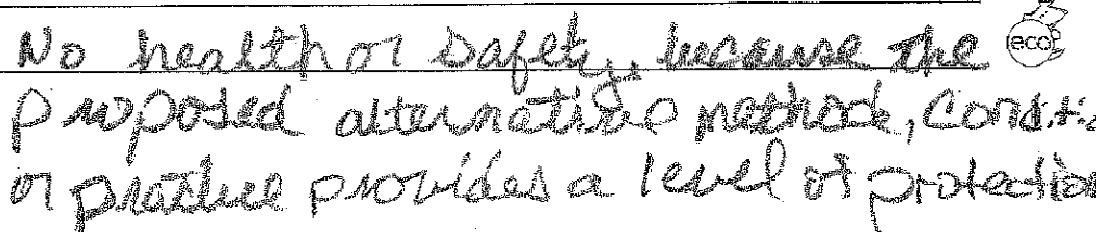 No health or safety, because the
eco
proposed alternative method, conditi
or practice provides a level of protection